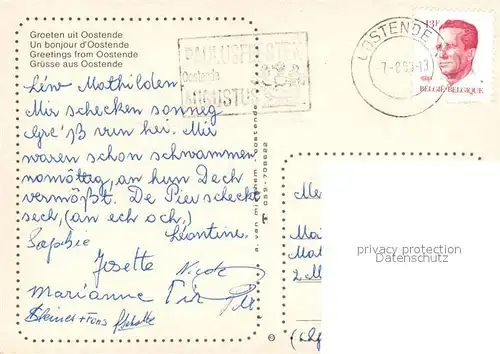 Groeten uit Oostende
Un bonjour d'Oostende
Greetings from Oostende
Grüsse aus Oostende
PAULUSFEESTEN
Oostende
AUGUSTUS
OOSTENDE
7-8
-13
13F
BELGIË-BELGIQUE
Léiw Mathilden.
Mir schecken sonneg
Gre'ß vun hei. Mir
waren schon schwammen
nomöttag, an hun Dech
vermößt. De Pier scheckt
sech, (an ech och,)
Sophie Léontine.
Josette Nicole
Marianne Pir
Steiner + Fons
a. van mieghem oostende
059-708622
Me
Mai
Mat
2
privacy protection
Datenschutz